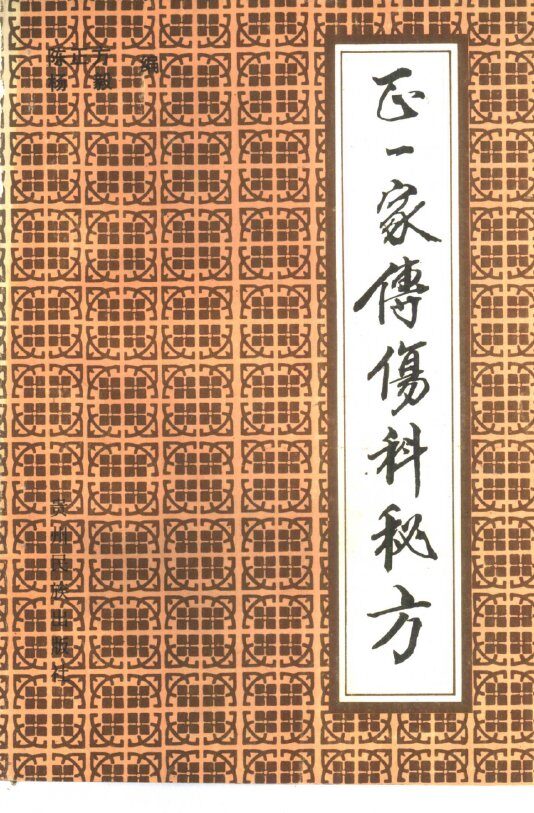 正一家傳傷科秘方
陈正芳 编
杨毅
贵州民族出版社